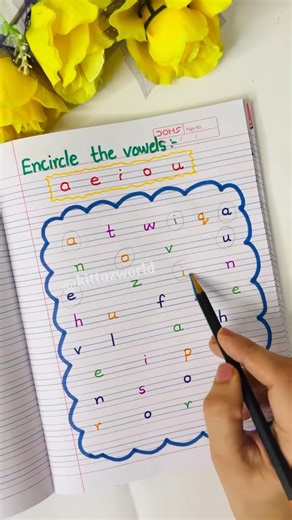 DOMS Page No.
Encircle the vowels:-
a e i o u
a t w i q a
n o v u
@kittuzworld
e z i n
h u f e
v l a h
e i p
n s o
r o r